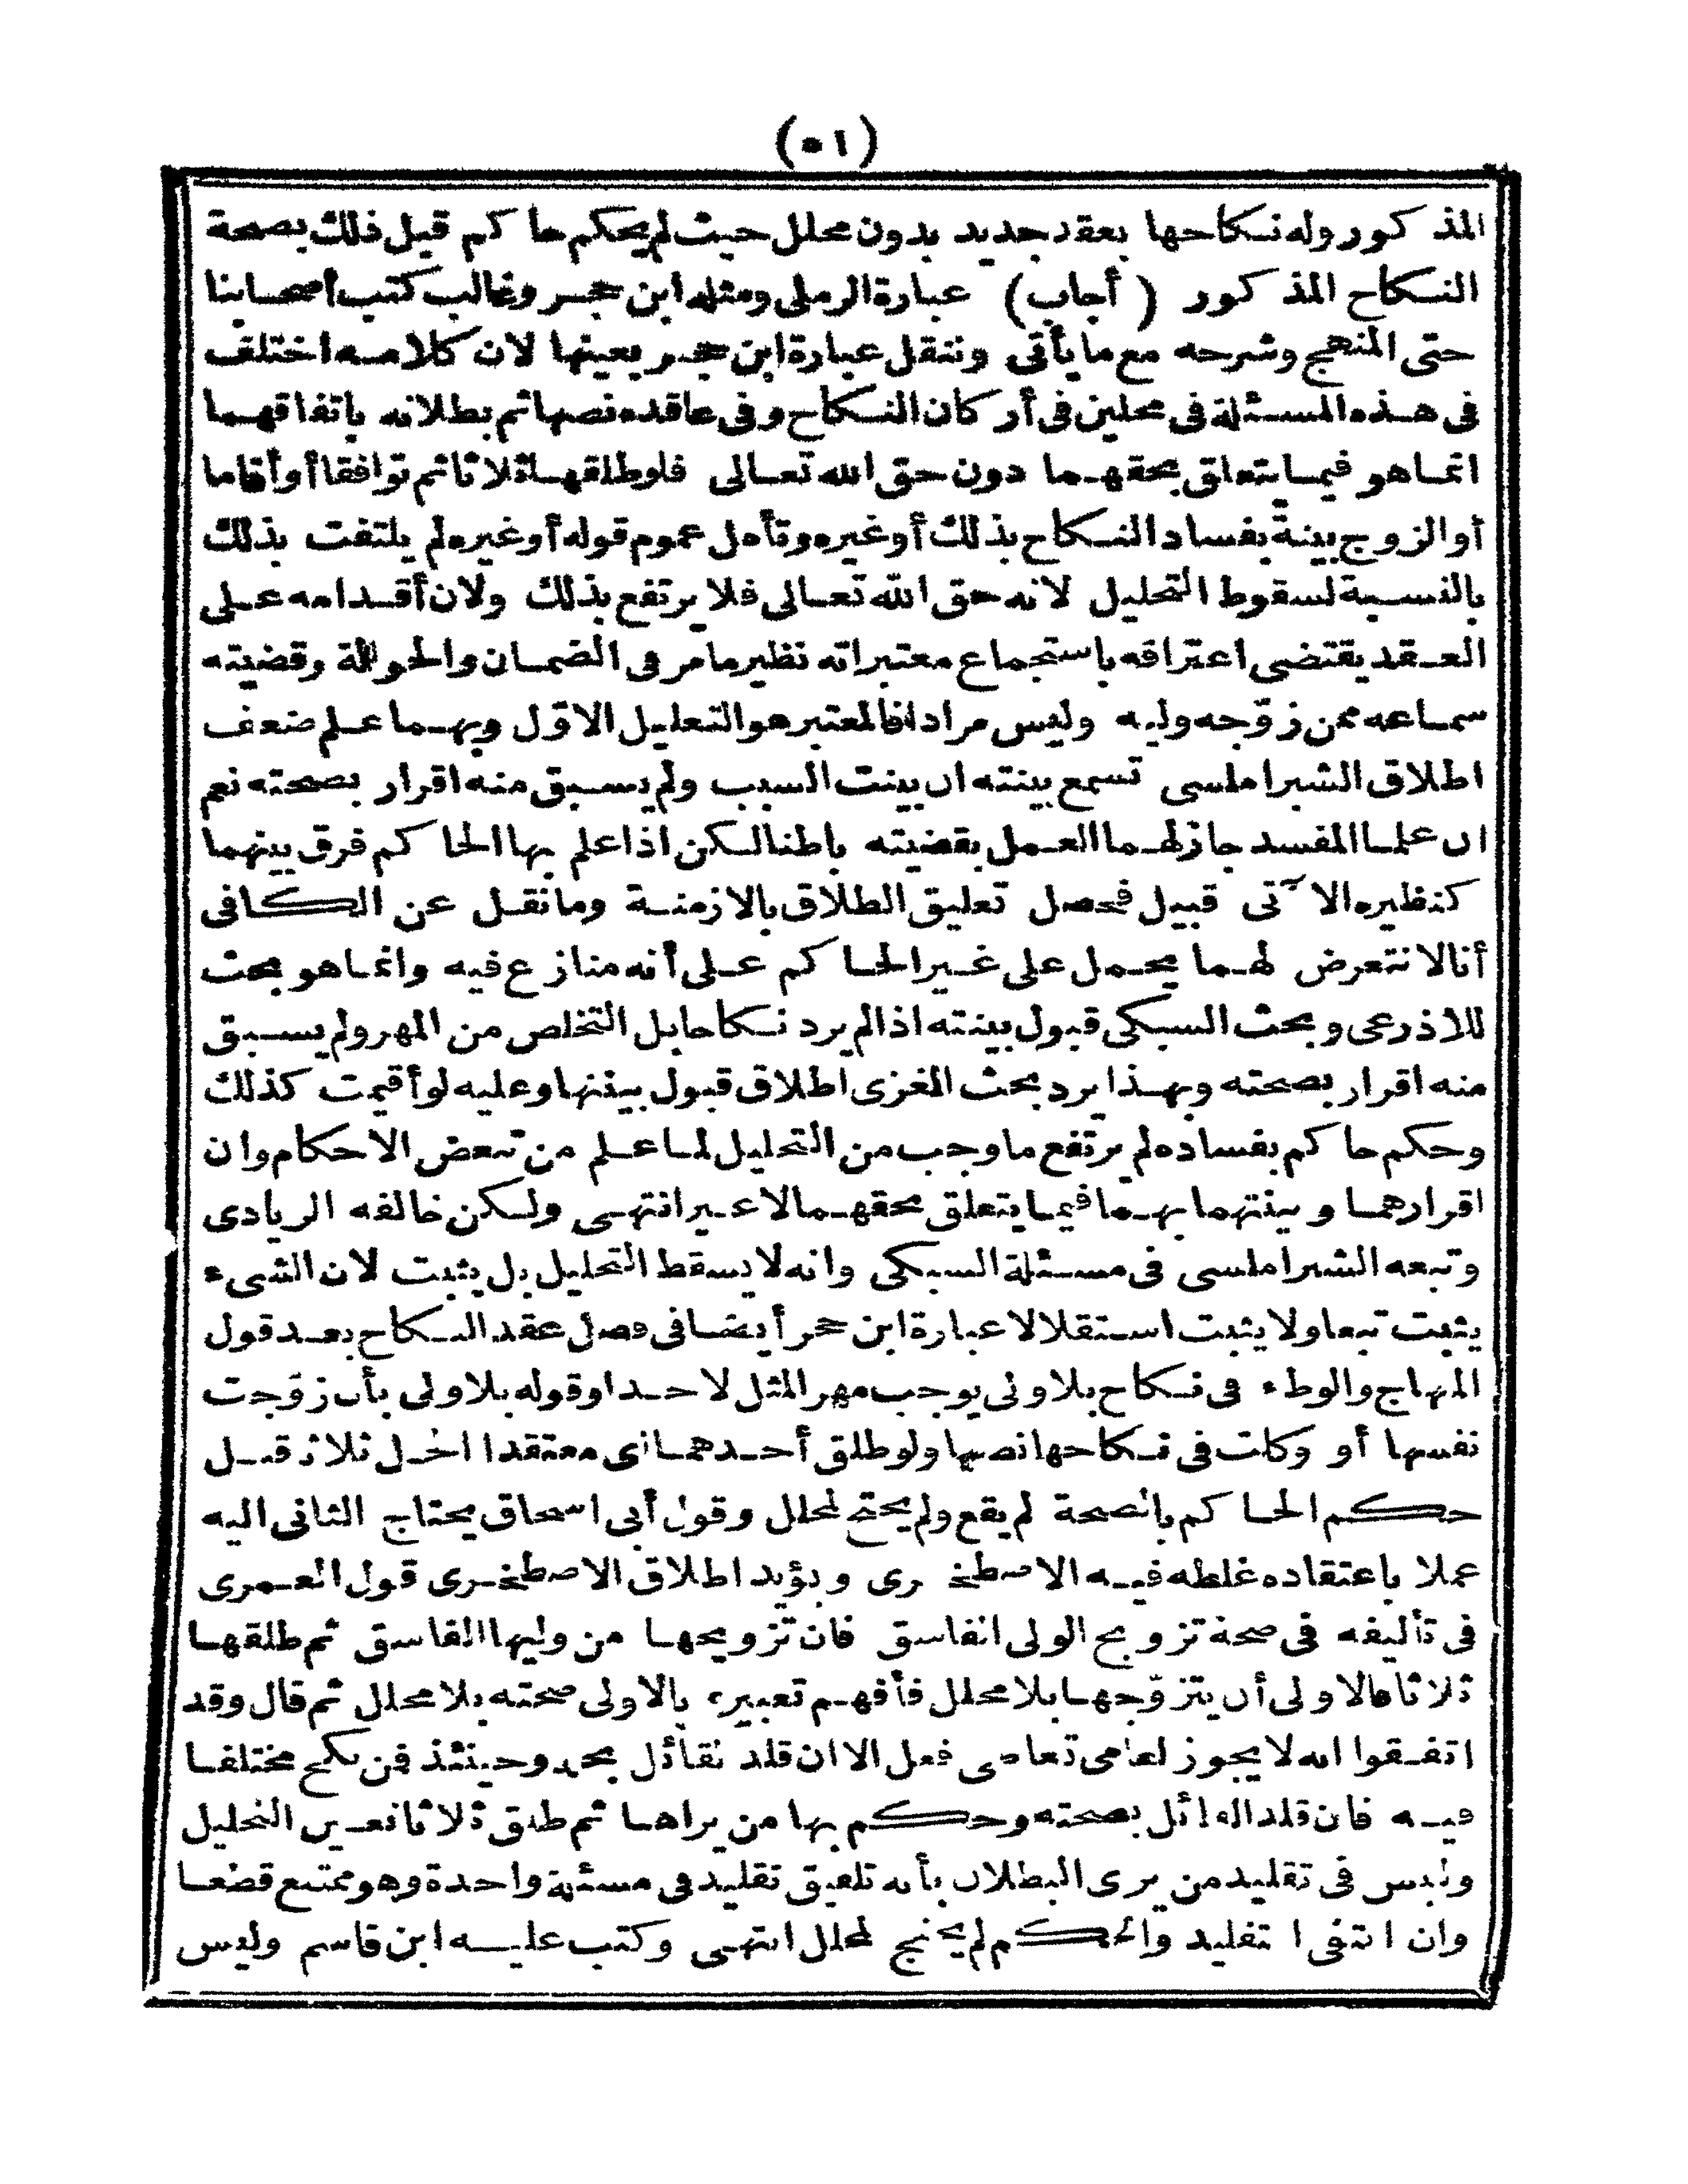 (٥١)
المذكور وله نكاحها بعقد جديد بدون محلل حيث لم يحكم حاكم قبل ذلك بصحة
النكاح المذكور (أجاب) عبارة الرملى ومثله ابن حجر وغالب كتب أصحابنا
حتى المنهج وشرحه مع ما يأتى وننقل عبارة ابن حجر بعينها لان كلامه اختلف
فى هذه المسئلة فى محلين فى أركان النكاح وفى عاقده نصها ثم بطلانه باتفاقهما
انما هو فيما يتعلق بحقهما دون حق الله تعالى فلو طلقها ثلاثا ثم توافقا أو أقاما
أو الزوج بينة بفساد النكاح بذلك أو غيره وتأمل عموم قوله أو غيره لم يلتفت بذلك
بالنسبة لسقوط التحليل لانه حق الله تعالى فلا يرتفع بذلك ولان أقدامه على
العقد يقتضى اعترافه باستجماع معتبراته نظير ما مر فى الضمان والحوالة وقضيته
سماعه ممن زوّجه وليه وليس مرادا فالمعتبر هو التعليل الاوّل وبهما علم ضعف
اطلاق الشبراملسى تسمع بينته ان بينت السبب ولم يسبق منه اقرار بصحته نعم
ان علما المفسد جاز لهما العمل بقضيته باطنا لكن اذا علم بها الحاكم فرق بينهما
كنظيره الآتى قبيل فصل تعليق الطلاق بالازمنة وما نقل عن الكافى
أنا لا نتعرض لهما يحمل على غير الحاكم على أنه منازع فيه وانما هو بحث
للاذرعى وبحث السبكى قبول بينته اذا لم يرد نكاحا بل التخلص من المهر ولم يسبق
منه اقرار بصحته وبهذا يرد بحث الغزى اطلاق قبول بينتها وعليه لو أقيمت كذلك
وحكم حاكم بفساده لم يرتفع ما وجب من التحليل لما علم من تبعض الاحكام وان
اقرارهما وبينتهما بهما فيما يتعلق بحقهما لا غير انتهى ولكن خالفه الزيادى
وتبعه الشبراملسى فى مسئلة السبكى وانه لا يسقط التحليل بل يثبت لان الشىء
يثبت تبعا ولا يثبت استقلالا عبارة ابن حجر أيضا فى فصل عقد النكاح بعد قول
المنهاج والوطء فى نكاح بلا ولى يوجب مهر المثل لا حدا وقوله بلا ولى بأن زوّجت
نفسها أو وكلت فى نكاحها نصها ولو طلق أحدهما أى معتقدا الحل ثلاثا قبل
حكم الحاكم بالصحة لم يقع ولم يحتج لمحلل وقول أبى اسحاق يحتاج الثانى اليه
عملا باعتقاده غلطه فيه الاصطخرى ويؤيد اطلاق الاصطخرى قول العمرى
فى تأليفه فى صحة تزويج الولى الفاسق فان تزويجها من وليها الفاسق ثم طلقها
ثلاثا فالاولى أن يتزوّجها بلا محلل فأفهم تعبيره بالاولى صحته بلا محلل ثم قال وقد
اتفقوا انه لا يجوز لعامى تعاطى فعل الا ان قلد لقائل بحله وحينئذ فمن نكح مختلفا
فيه فان قلد القائل بصحته وحكم بها من يراها ثم طلق ثلاثا تعين التحليل
وليس فى تقليد من يرى البطلان بأنه تلفيق تقليد فى مسئلة واحدة وهو ممتنع قطعا
وان انتفى التقليد والحكم لم يحتج لمحلل انتهى وكتب عليه ابن قاسم وليس